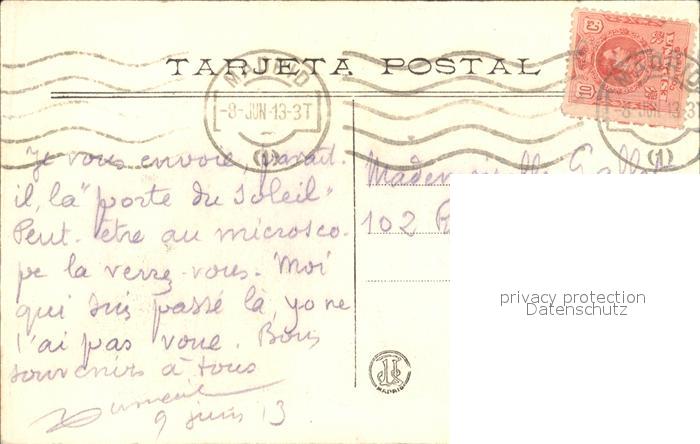 TARJETA POSTAL
MADRID
-8-JUN-13-3T
(1)
10
-8-JUN-13-3
(1)
Je vous envoie, parait-
il, la "porte du Soleil"
Peut-être au microsco-
pe la verrez-vous. Moi
qui suis passé là, yo ne
l'ai pas vue. Bons
souvenirs à tous
9 juin 13
Mademoiselle
102
MADRID
privacy protection
Datenschutz